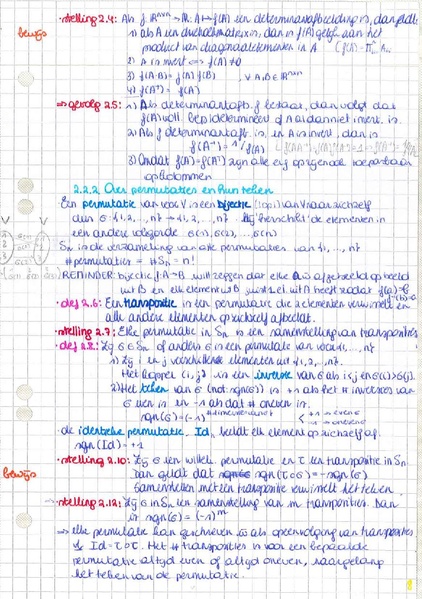 • stelling 2.4: Als f: ℝⁿˣⁿ → ℝ: A ↦ f(A) een determinantafbeelding is, dan geldt
bewijs
1) als A een driehoeksmatrix is, dan is f(A) gelijk aan het
product van diagonaalelementen in A
2) A is invert ⟺ f(A) ≠ 0
3) f(A·B) = f(A) f(B) ∀ A,B ∈ ℝⁿˣⁿ
4) f(Aᵀ) = f(A)
⇒ gevolg 2.5: 1) Als determinantafb. f bestaat, dan volgt dat
f(A) voll. bepaald eered of A al dan niet invert. is.
2) Als f determinantaf. is, en A is invert, dan is
f(A⁻¹) = 1/f(A)
3) Omdat f(A) = f(Aᵀ) zijn alle eig op toepasbaar
op kolommen
2.2.2 Over permutaties en hun teken
Een permutatie van voor V is een bijectie (1 op 1) van V naar zichzelf
dus σ: {1,2,...,n} → {1,2,...,n} Hij 'herschikt' de elementen in
een andere volgorde σ(1), σ(2), ..., σ(n)
Sn is de verzameling van alle permutaties van {1,...,n}
# permutaties = #Sn = n!
REMINDER: bijectie f: A→B wil zeggen dat elke a w afgebeeld op beeld
uit B en elk element uit B juist 1 el. uit A heeft zodat f(a)=b
• def 2.6: Een transpositie is een permutatie die 2 elementen verwisselt en
alle andere elementen op zichzelf afbeeldt.
• stelling 2.7: Elke permutatie in Sn is een samenstelling van transposities
• def 2.8: Zij σ ∈ Sn of anders σ is een permutatie van voor {1,...,n}
1) Zij i en j verschillende elementen uit {1,2,...,n}.
Het koppel (i,j) is een inversie van σ als i<j en σ(i)>σ(j).
2) Het teken van σ (not: sgn(σ)) is +1 als het # inversies van
σ even is en -1 als dat # oneven is.
sgn(σ) = (-1)^# inversies van σ < +1 → even σ
-1 → oneven σ
• de identieke permutatie, Id, beeldt elk element op zichzelf af.
sgn(Id) = +1
• stelling 2.10: Zij σ een willek. permutatie en τ een transpositie in Sn.
bewijs
Dan geldt dat sgn(τ∘σ) = -sgn(σ)
Samenstellen met een transpositie verwisselt het teken.
→ stelling 2.12: Zij σ in Sn een samenstelling van m transposities. Dan
is sgn(σ) = (-1)ᵐ
⇒ elke permutatie kan geschreven als opeenvolging van transposities
& Id = τ∘τ. Het # transposities is voor een bepaalde
permutatie altijd even of altijd oneven, naargelang
het teken van de permutatie.